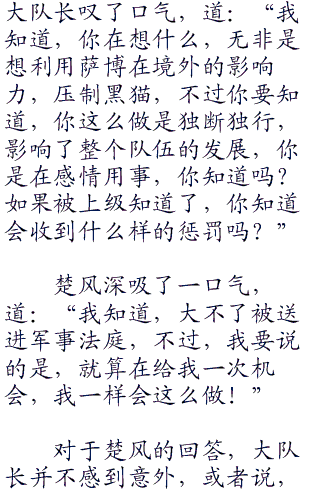 大队长叹了口气，道：“我
知道，你在想什么，无非是
想利用萨博在境外的影响
力，压制黑猫，不过你要知
道，你这么做是独断独行，
影响了整个队伍的发展，你
是在感情用事，你知道吗？
如果被上级知道了，你知道
会收到什么样的惩罚吗？”
楚风深吸了一口气，
道：“我知道，大不了被送
进军事法庭，不过，我要说
的是，就算在给我一次机
会，我一样会这么做！”
对于楚风的回答，大队
长并不感到意外，或者说，